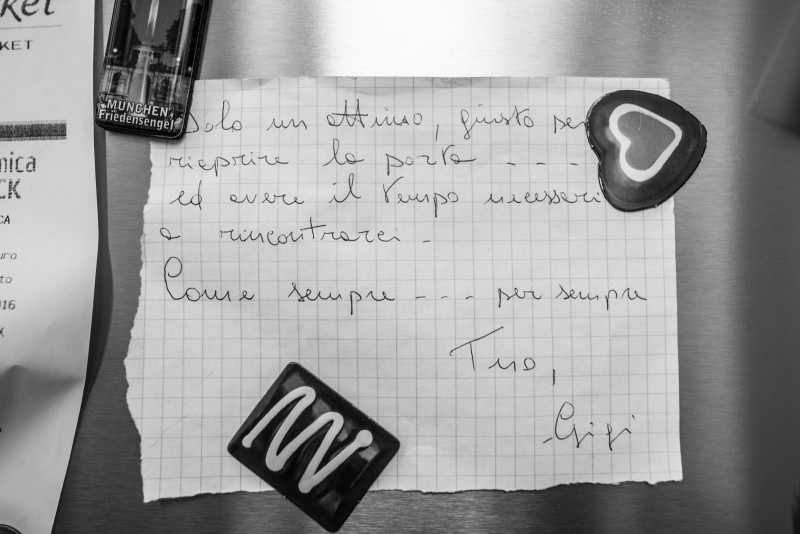 ket
KET
nica
CK
CA
uro
to
016
X
MÜNCHEN
Friedensengel
Solo un attimo, giusto per
riaprire la porta - - -
ed avere il tempo necessari
a rincontrarci.
Come sempre - - - per sempre
Tuo,
Gigi